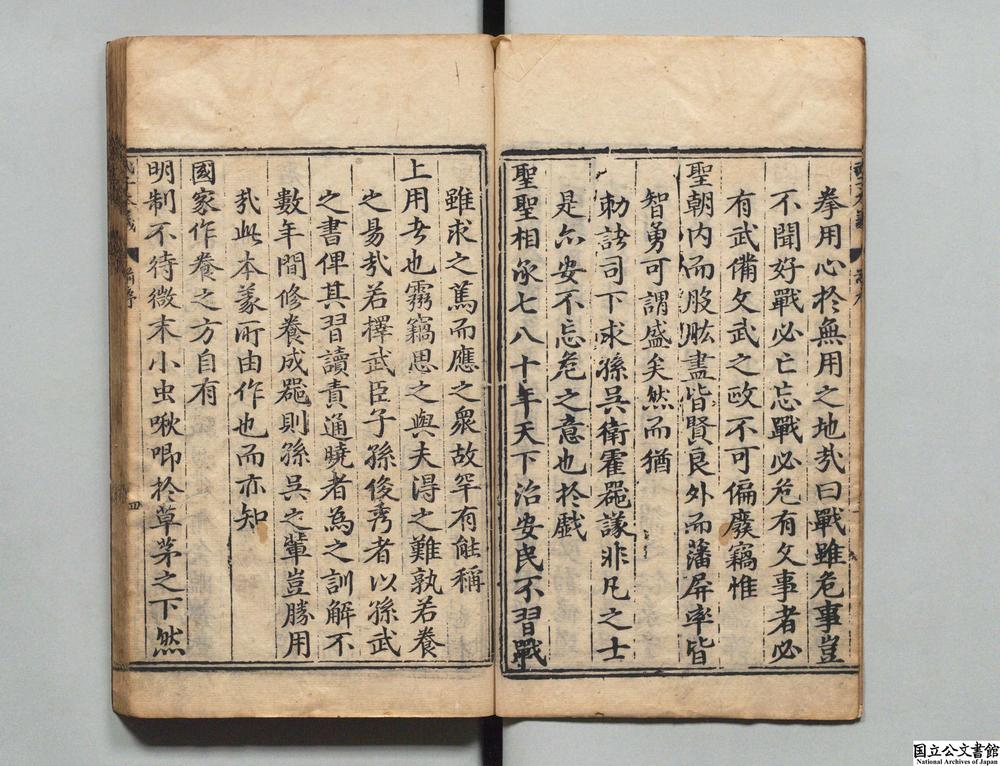 拳用心於無用之地㢤曰戰雖危事豈
不聞好戰必亡忘戰必危有文事者必
有武備文武之政不可偏廢竊惟
聖朝内而股肱盡皆賢良外而藩屏率皆
智勇可謂盛矣然而猶
勅諸司下求孫吳衛霍噐謀非凡之士
是亦安不忘危之意也於戲
聖聖相承七八十年天下治安民不習戰
雖求之篤而應之衆故罕有能稱
上用者也霧竊思之與夫淂之難孰若養
之易㢤若擇武臣子孫俊秀者以孫武
之書俾其習讀責通曉者為之訓解不
數年間修養成噐則孫吳之輩豈勝用
㢤此本義所由作也而亦知
國家作養之方自有
明制不待微末小虫啾喞於草茅之下然
四
国立公文書館
National Archives of Japan